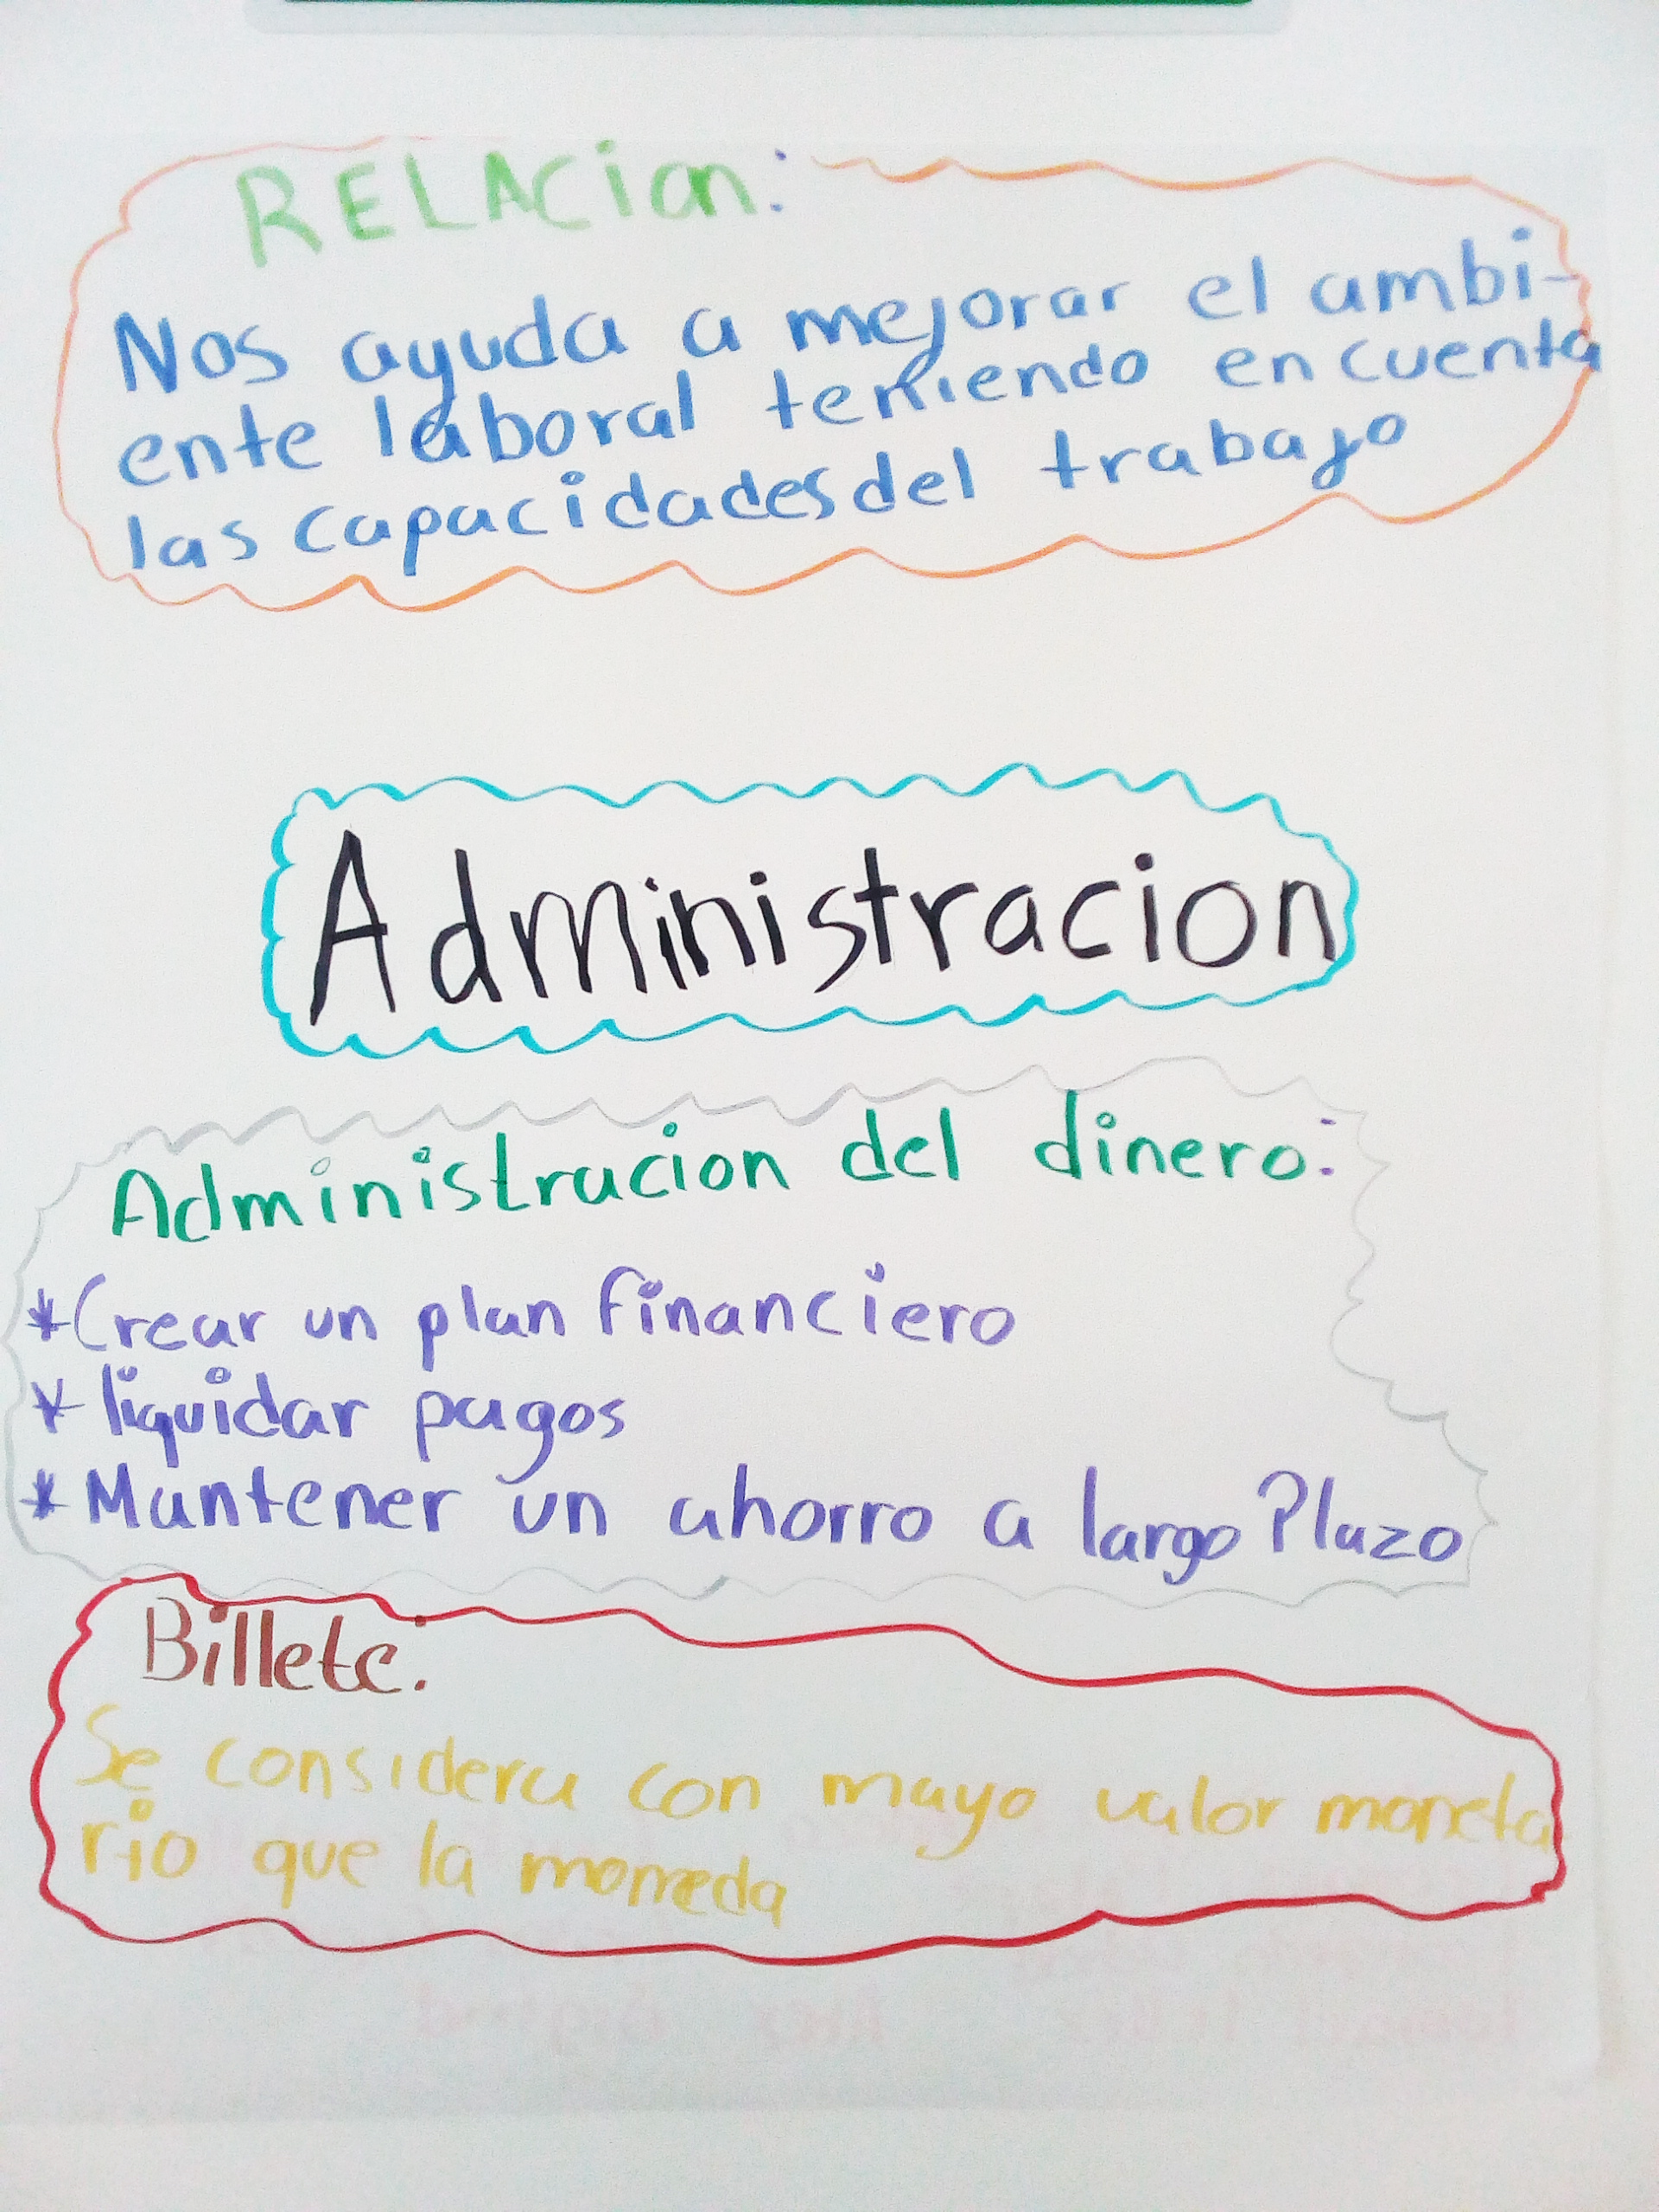 RELACion:
Nos ayuda a mejorar el ambi-
ente laboral teniendo en cuenta
las capacidades del trabajo
Administracion
Administracion del dinero:
*Crear un plan financiero
* liquidar pagos
* Mantener un ahorro a largo Plazo
Billete:
Se considera con mayo valor moneta
rio que la moneda